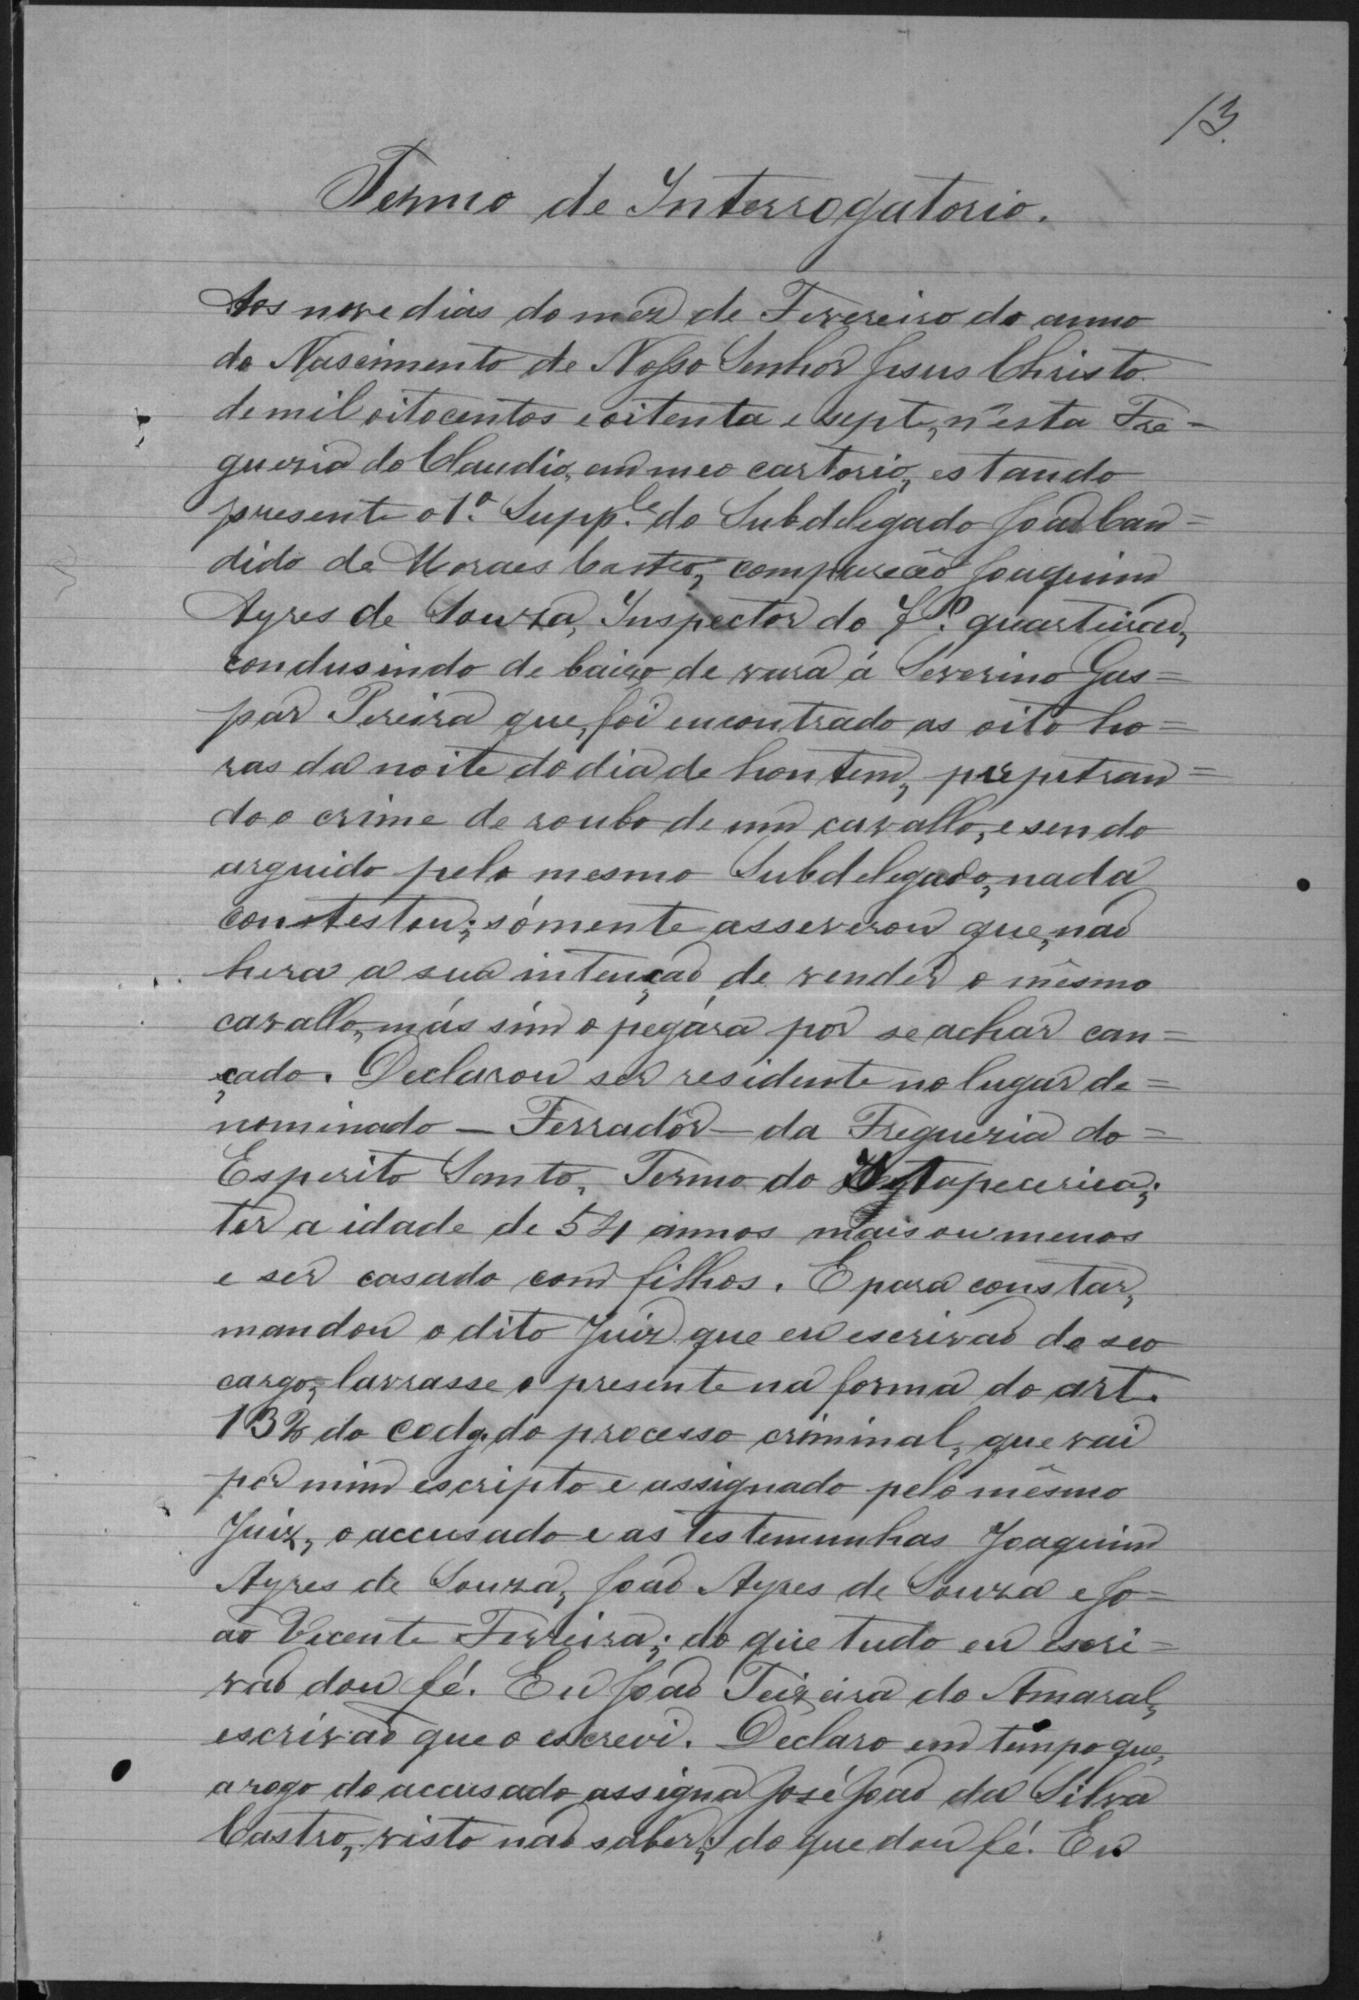 13.
Termo de Interrogatorio.
Aos nove dias do mez de Fevereiro do anno
do Nascimento de Nosso Senhor Jesus Christo
de mil oitocentos e oitenta e septe, n'esta Fre=
guezia do Claudio, em meo cartorio, estando
presente o 1º. Supp.le do Subdelegado João Can=
dido de Moraes Castro, compareceo Joaquim
Ayres de Souza, Inspector do 7º. quarteirão,
condusindo de baixo de vara á Severino Gas=
par Pereira que, foi encontrado as oito ho=
ras da noite do dia de hontem, perpetran=
do o crime de roubo de um cavallo, e sendo
arguido pelo mesmo Subdelegado, nada
constestou; sómente asseverou que, não
hera a sua intenção de vender o mêsmo
cavallo, más sim o pegára por se achar can=
çado. Declarou ser residente no lugar de=
nominado — Ferrador — da Freguezia do=
Esperito Santo, Termo do Itapecerica;
ter a idade de 54 annos mais ou menos
e ser casado com filhos. E para constar,
mandou o dito Juiz que eu escrivão de seo
cargo, lavrasse o presente na forma do art.
132 do codg. do processo criminal, que vai
por mim escripto e assignado pelo mêsmo
Juiz, o accusado e as testemunhas Joaquim
Ayres de Souza, João Ayres de Souza e Jo=
ão Vicente Ferreira; do que tudo eu escri=
vão dou fé. Eu João Teixeira do Amaral,
escrivão que o escrevi. Declaro em tempo que,
a rogo do accusado assigna José João da Silva
Castro, visto não saber; do que dou fé. Eu